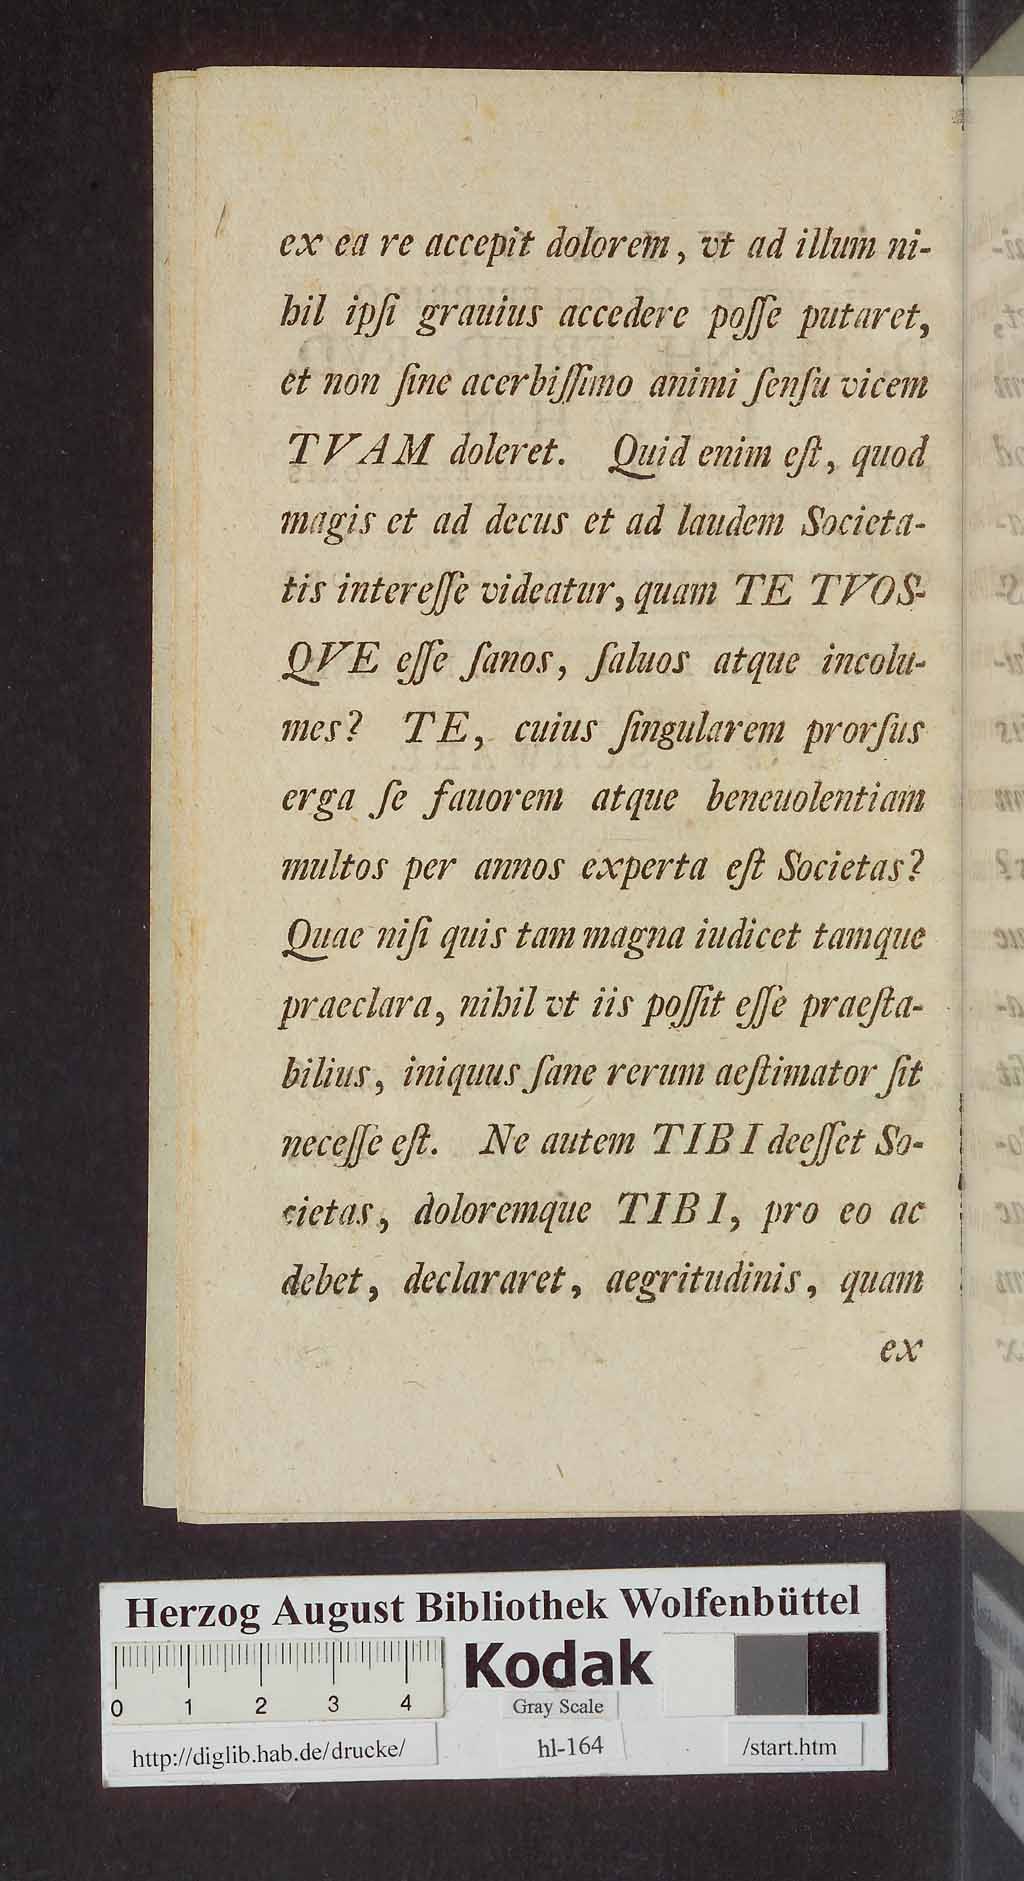 ex ea re accepit dolorem, vt ad illum ni-
hil ipſi grauius accedere poſſe putaret,
et non ſine acerbiſſimo animi ſenſu vicem
TVAM doleret. Quid enim eſt, quod
magis et ad decus et ad laudem Societa-
tis intereſſe videatur, quam TE TVOS-
QVE eſſe ſanos, ſaluos atque incolu-
mes? TE, cuius ſingularem prorſus
erga ſe fauorem atque beneuolentiam
multos per annos experta eſt Societas?
Quae niſi quis tam magna iudicet tamque
praeclara, nihil vt iis poſſit eſſe praeſta-
bilius, iniquus ſane rerum aeſtimator ſit
neceſſe eſt. Ne autem TIBI deeſſet So-
cietas, doloremque TIBI, pro eo ac
debet, declararet, aegritudinis, quam
ex
Herzog August Bibliothek Wolfenbüttel
0 1 2 3 4
Kodak
Gray Scale
http://diglib.hab.de/drucke/ hl-164 /start.htm